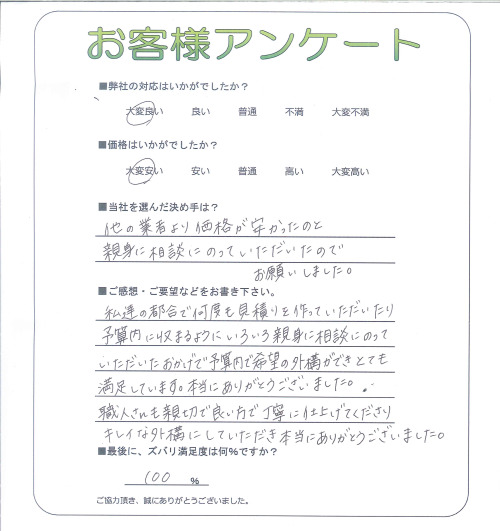 お客様アンケート
■弊社の対応はいかがでしたか？
大変良い 良い 普通 不満 大変不満
■価格はいかがでしたか？
大変安い 安い 普通 高い 大変高い
■当社を選んだ決め手は？
他の業者より価格が安かったのと
親身に相談にのっていただいたので
お願いしました。
■ご感想・ご要望などをお書き下さい。
私達の都合で何度も見積りを作っていただいたり
予算内に収まるようにいろいろ親身に相談にのって
いただいたおかげで予算内で希望の外構ができとても
満足しています。本当にありがとうございました。
職人さんも親切で良い方で丁寧に仕上げてくださり
キレイな外構にしていただき本当にありがとうございました。
■最後に、ズバリ満足度は何%ですか？
100 %
ご協力頂き、誠にありがとうございました。